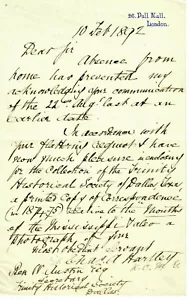 26, Pall Mall,
London.
10 Feb 1892
Dear Sir
Absence from
home has prevented my
acknowledging your communication
of the 22nd Aug last at an
earlier date
In accordance with
your flattering request I have
now much pleasure in enclosing
for the Collection of the Trinity
Historical Society of Dallas, Texas
a printed Copy of Correspondence
(in 1874-75) relative to the Mouths
of the Mississippi &
Photograph of your
most obedient Servant
Chas A Hartley
K.C.M.G.
Ron W Austin Esq
Secretary
Trinity Historical Society
Dallas